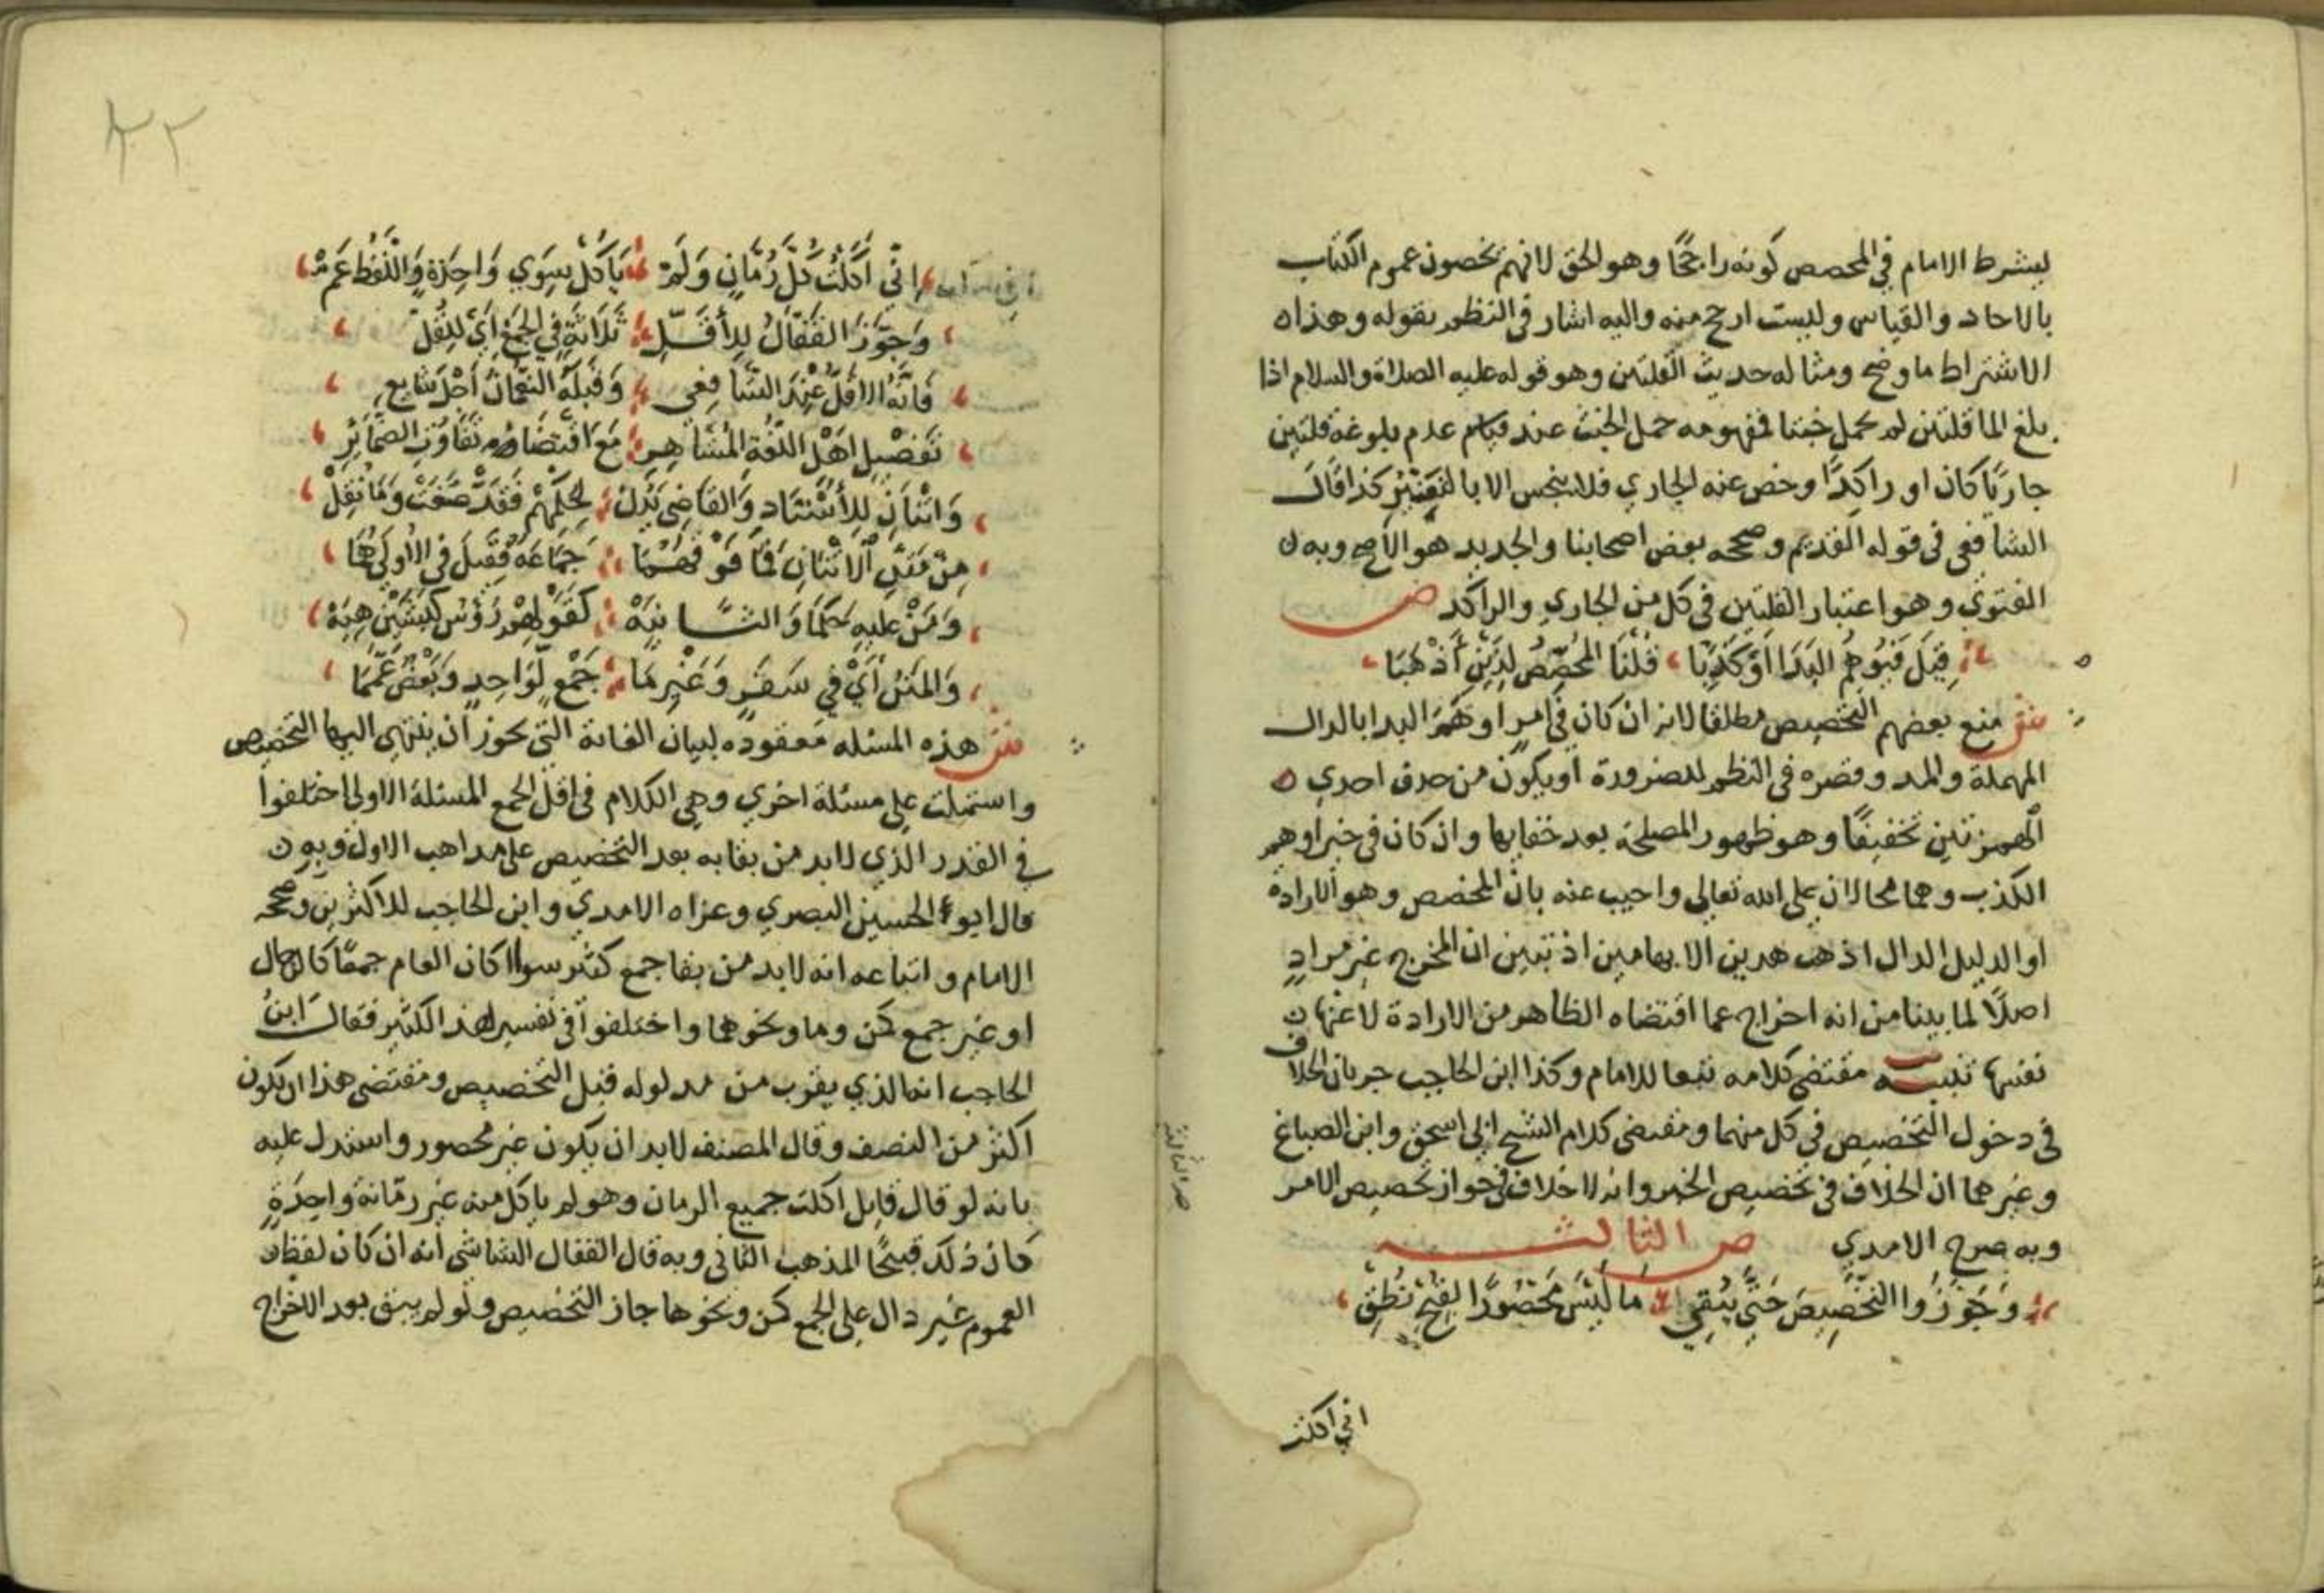 يشترط الامام في المخصص كونه راجحًا وهو الحق لانهم يخصون عموم الكتاب
بالاحاد والقياس وليست ارجح منه واليه اشار في النظم بقوله وهذاه
الاشتراط ما وضح ومثاله حديث القلتين وهو قوله عليه الصلاة والسلام اذا
بلغ الما قلتين لم يحمل خبثا فمفهومه حمل الخبث عند قيام عدم بلوغه قلتين
جاريًا كان او راكدًا وخص عنه الجاري فلا ينجس الا بالتغير كذا قال
الشافعي في قوله القديم وصححه بعض اصحابنا والجديد هو الاصح وبه ن
الفتوي وهو اعتبار القلتين في كل من الجاري والراكد ص
قِيلَ فَيُوهِمُ البَدَا اَوْ كَذِبَا قُلْنَا المُخَصِّصُ لِذَيْنِ أَذْهَبَا
ش منع بعضهم التخصيص مطلقا لانه ان كان في امرٍ اوهَمَ البدا بالدال
المهملة والمد وقصره في النظم للضرورة او يكون من حذف احدي ه
الهمزتين تخفيفًا وهو ظهور المصلحة بعد خفايها وان كان في خبر اوهم
الكذب وهما محالان على الله تعالى واجيب عنه بان المخصص وهو الارادة
او الدليل الدال اذهب هدين الايهامين اذ تبين ان المخرج غير مرادٍ
اصلًا لما بينا من انه اخراج عما اقتضاه الظاهر من الارادة لا عنها ن
نفسها تنبيه مقتضى كلامه تبعا للامام وكذا ابن الحاجب جريان الخلاف
في دخول التخصيص في كل منهما ومقتضى كلام الشيخ ابي اسحق وابن الصباغ
وغيرهما ان الخلاف في تخصيص الخبر وانه لا خلاف في جواز تخصيص الامر
وبه صرح الامدي ص الثالثــــــة
وَجَوَّزُوا التَّخْصِيصَ حَتَّى يَبْقِي مَا لَيْسَ مَحْصُورًا لِقُبْحِ نُطْقِ
اني اكلت
٤٢
اِنِّي اَكَلْتُ كُلَّ رُمَّانٍ وَلَمْ يَاكُلْ سِوَي وَاحِدَةٍ وَاللَّفْظُ عَمّْ
وَجَوَّزَ القَفَّالُ لِلأَقَلِّ ثَلَاثَةٍ في الجَمْعِ اَيْ لِنُقُلِ
فَاِنَّهُ الاقلُّ عِنْدَ الشَّافِعِي وَقَبْلَهُ النُّعْمَانُ أَجْلَ شايعِ
تَفْصِيلِ اَهْلِ اللُّغَةِ المُشَاهِيرِ مَعَ اقتِضَاءِ تَفَاوُتِ الضَّمَايِرِ
وَاثْنَانِ لِلأُسْتَادِ وَالقَاضِي بَدَلْ لِحُكْمِهِمْ فَقَدْ صَغَتْ وَمَا نُقِلْ
مِنْ مَقَلِ الاثْنَانِ فَمَا فَوْقَهُمَا جَمَاعَةٌ فَقِيلَ في الأُولَي هُمَا
وَمَنْ عليهِ حَكَمَا وَالثَّانِيَهْ كَقَوْلِهِمْ رُؤُسُ كَبْشَيْن هِيَهْ
وَالمَتْنُ أَيْ في سَفَرٍ وَغَيْرِ مَا جَمْعٍ لِوَاحِدٍ وَبَعْضٌ عَمَّمَا
ش هذه المسئله معقوده لبيان الغاية التي يجوز ان ينتهي اليها التخصيص
واشتملت علي مسئلة اخري وهي الكلام في اقل الجمع المسئلة الاولي اختلفوا
في القدر الذي لا بد من بقايه بعد التخصيص على مداهب الاول وبه ن
قال ابو الحسين البصري وعزاه الامدي وابن الحاجب للاكثرين وصححه
الامام واتباعه انه لابد من بقا جمع كثير سواا كان العام جمعًا كالرجال
او غير جمع كمن وما ونحوهما واختلفوا في تفسير هذا الكثير فقال ابن
الحاجب انه الذي يقرب من مدلوله قبل التخصيص ومقتضي هذا ان يكون
اكثر من النصف وقال المصنف لابد ان يكون غير محصور واستدل عليه
بانه لو قال قايل اكلت جميع الرمان وهو لم ياكل منه غير رمّانة واحِدَةٍ
كان ذلك قبيحًا المذهب الثاني وبه قال القفال الشاشي انه ان كان لفظ ن
العموم غير دال على الجمع كمن ونحوها جاز التخصيص ولو لم يبق بعد الاخراج